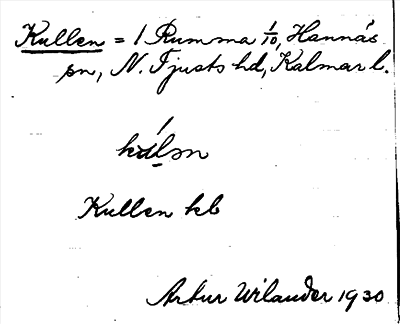 Kullen = 1 Rumma 1/10, Hannäs
sn, N. Tjusts hd, Kalmar l.
Kullen kb
Artur Wilander 1930